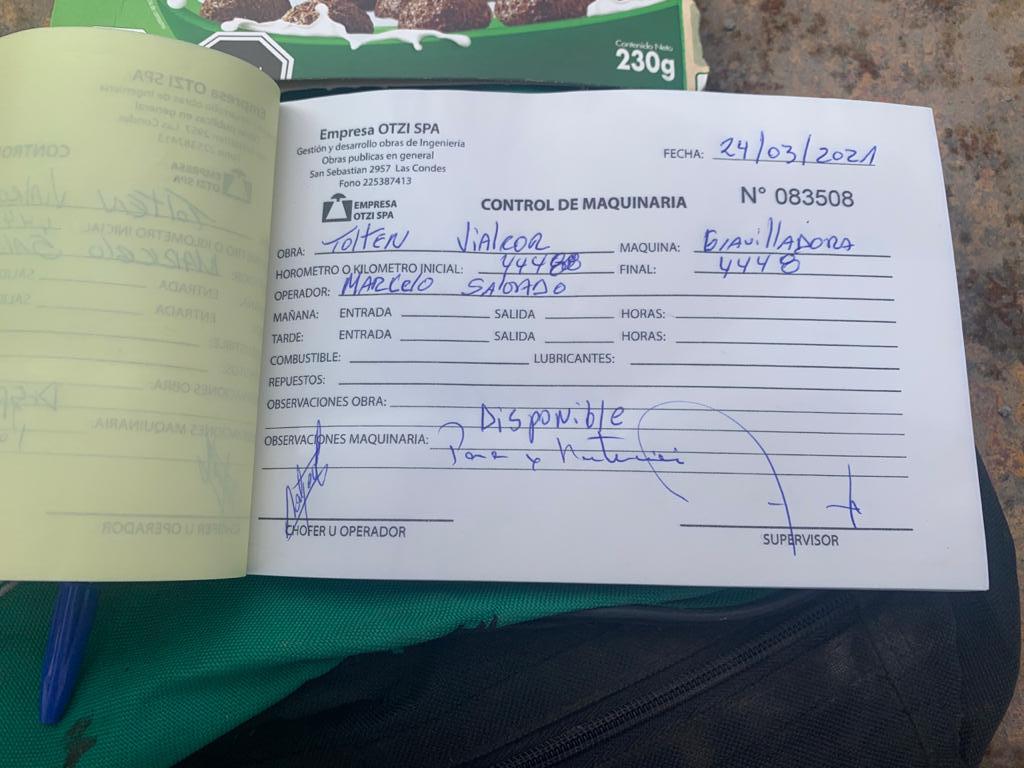 Contenido Neto
230g
Empresa OTZI SPA
Gestión y desarrollo obras de Ingeniería
Obras publicas en general
San Sebastian 2957 Las Condes
Fono 225387413
FECHA: 24/03/2021
EMPRESA
OTZI SPA
CONTROL DE MAQUINARIA
N° 083508
OBRA: TOLTEN Vialcor MAQUINA: GravillADORA
HOROMETRO O KILOMETRO INICIAL: FINAL: 4448
OPERADOR: MARCELO SALGADO
MAÑANA: ENTRADA SALIDA HORAS:
TARDE: ENTRADA SALIDA HORAS:
COMBUSTIBLE: LUBRICANTES:
REPUESTOS:
OBSERVACIONES OBRA:
Disponible
OBSERVACIONES MAQUINARIA:
CHOFER U OPERADOR
SUPERVISOR